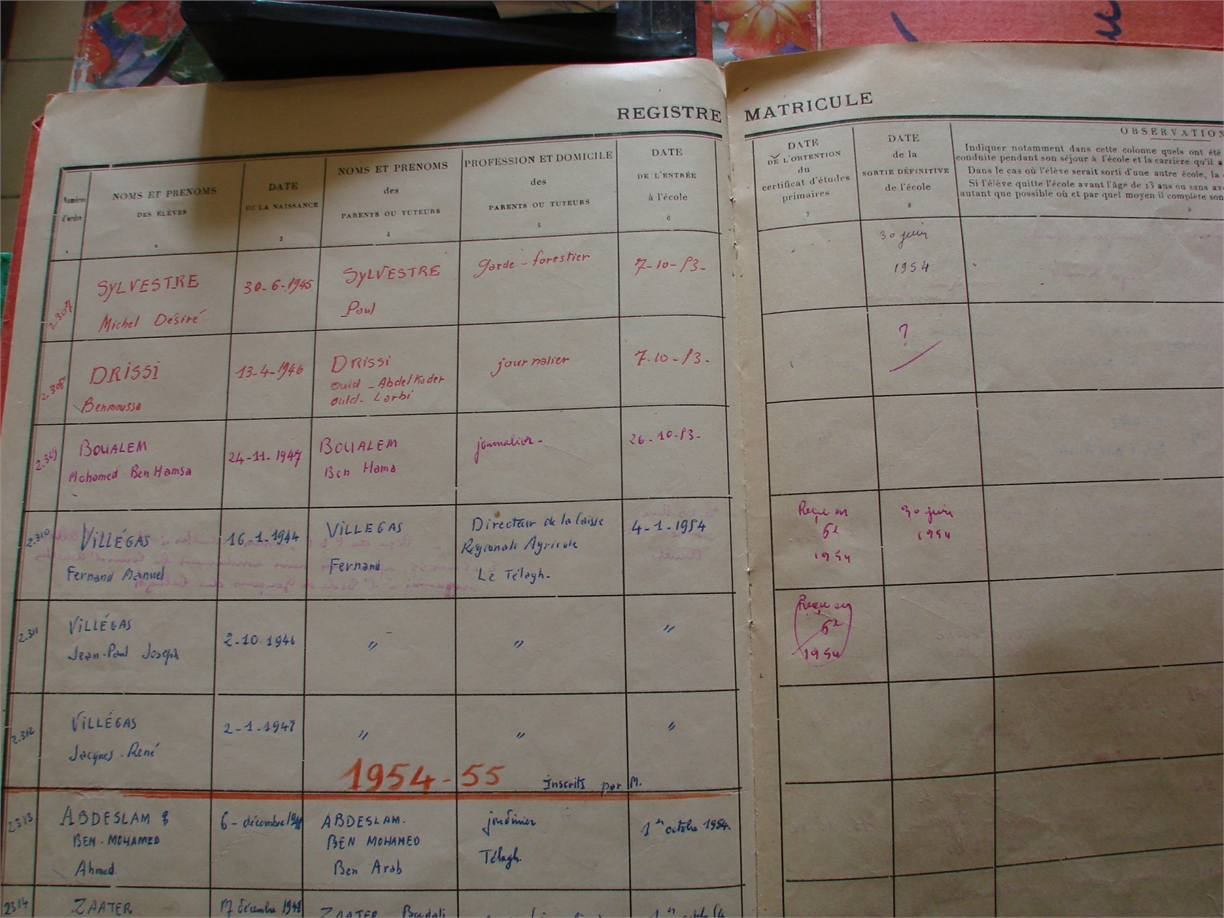 REGISTRE MATRICULE
Numéros
d'ordre
NOMS ET PRENOMS
DES ÉLÈVES
DATE
DE LA NAISSANCE
3
NOMS ET PRENOMS
des
PARENTS OU TUTEURS
4
PROFESSION ET DOMICILE
des
PARENTS OU TUTEURS
5
DATE
DE L'ENTRÉE
à l'école
6
DATE
DE L'OBTENTION
du
certificat d'études
primaires
7
DATE
de la
SORTIE DÉFINITIVE
de l'école
8
OBSERVATION
Indiquer notamment dans cette colonne quels ont été
conduite pendant son séjour à l'école et la carrière qu'il a
Dans le cas où l'élève serait sorti d'une autre école, la
Si l'élève quitte l'école avant l'âge de 13 ans ou sans av
autant que possible où et par quel moyen il complète son
9
2.307
SYLVESTRE
Michel Désiré
30-6-1945
SYLVESTRE
Paul
garde-forestier
7-10-53-
30 juin
1954
2.308
DRISSI
Benmoussa
13-4-1946
DRISSI
ould-Abdelkader
ould-Larbi
journalier
7-10-53-
?
2.309
BOUALEM
Mohamed Ben Hamsa
24-11-1947
BOUALEM
Ben Hama
journalier-
26-10-53-
2.310
VILLÉGAS
Fernand Manuel
16-1-1944
VILLEGAS
Fernand
Directeur de la Caisse
Régionale Agricole
Le Télagh-
4-1-1954
Reçu en
6e
1954
30 juin
1954
2.311
VILLÉGAS
Jean-Paul Joseph
2-10-1946
"
"
"
Reçu en
6e
1954
2.312
VILLÉGAS
Jacques-René
2-1-1948
"
"
"
1954-55 inscrits par M.
2313
ABDESLAM
BEN-MOHAMED
Ahmed
6-décembre
ABDESLAM.
BEN MOHAMED
Ben Arab
jardinier
Télagh.
1er octobre 1954.
2314
ZAATER
17 décembre 1948
ZAATER